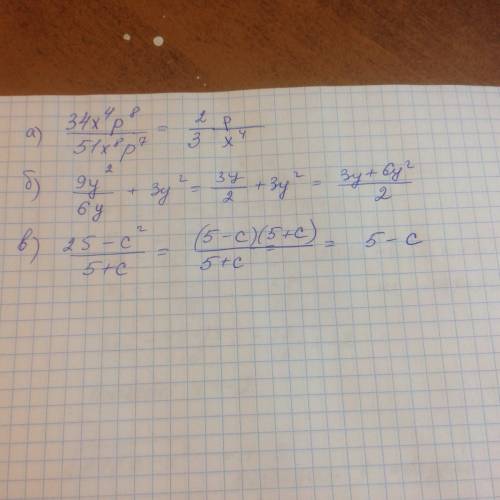 а) 34x⁴p⁸/51x⁸p⁷ = 2 p/3 x⁴
б) 9y²/6y + 3y² = 3y/2 + 3y² = 3y+6y²/2
в) 25-c²/5+c = (5-c)(5+c)/5+c = 5-c